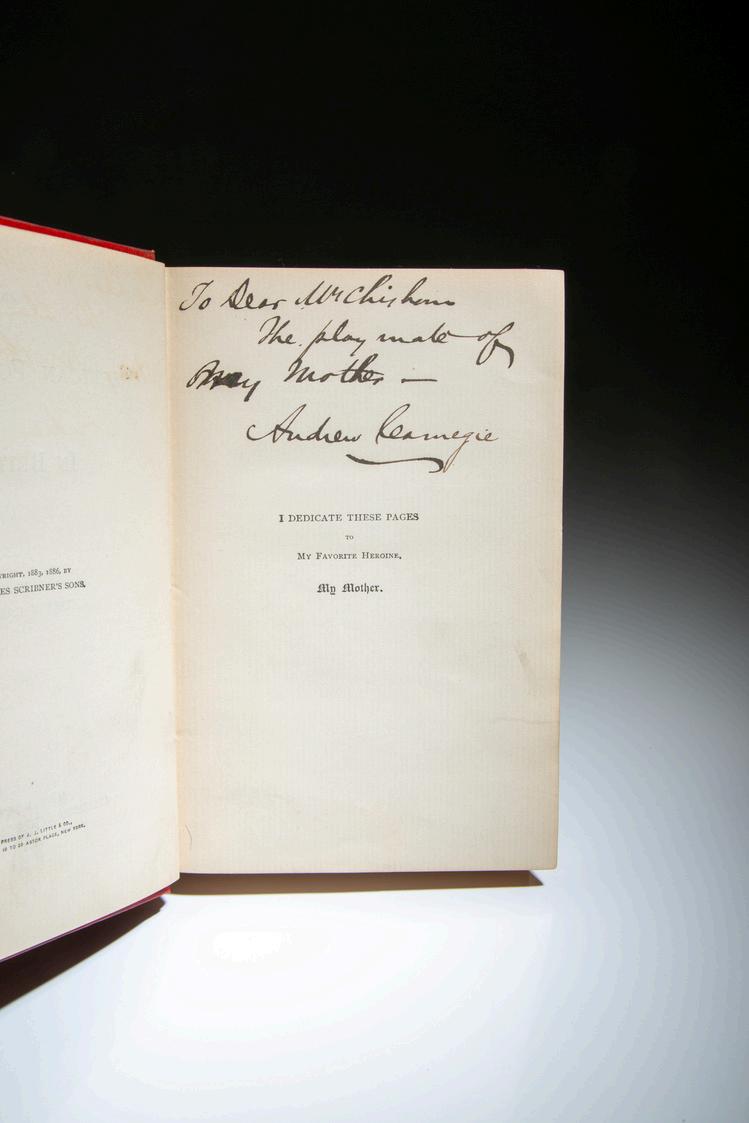 YRIGHT, 1883, 1886, BY
ES SCRIBNER'S SONS.
PRESS OF J. J. LITTLE & CO.,
10 TO 20 ASTOR PLACE, NEW YORK.
To Dear Mr Chisholm
The play mate of
My Mother —
Andrew Carnegie
I DEDICATE THESE PAGES
TO
MY FAVORITE HEROINE,
My Mother.